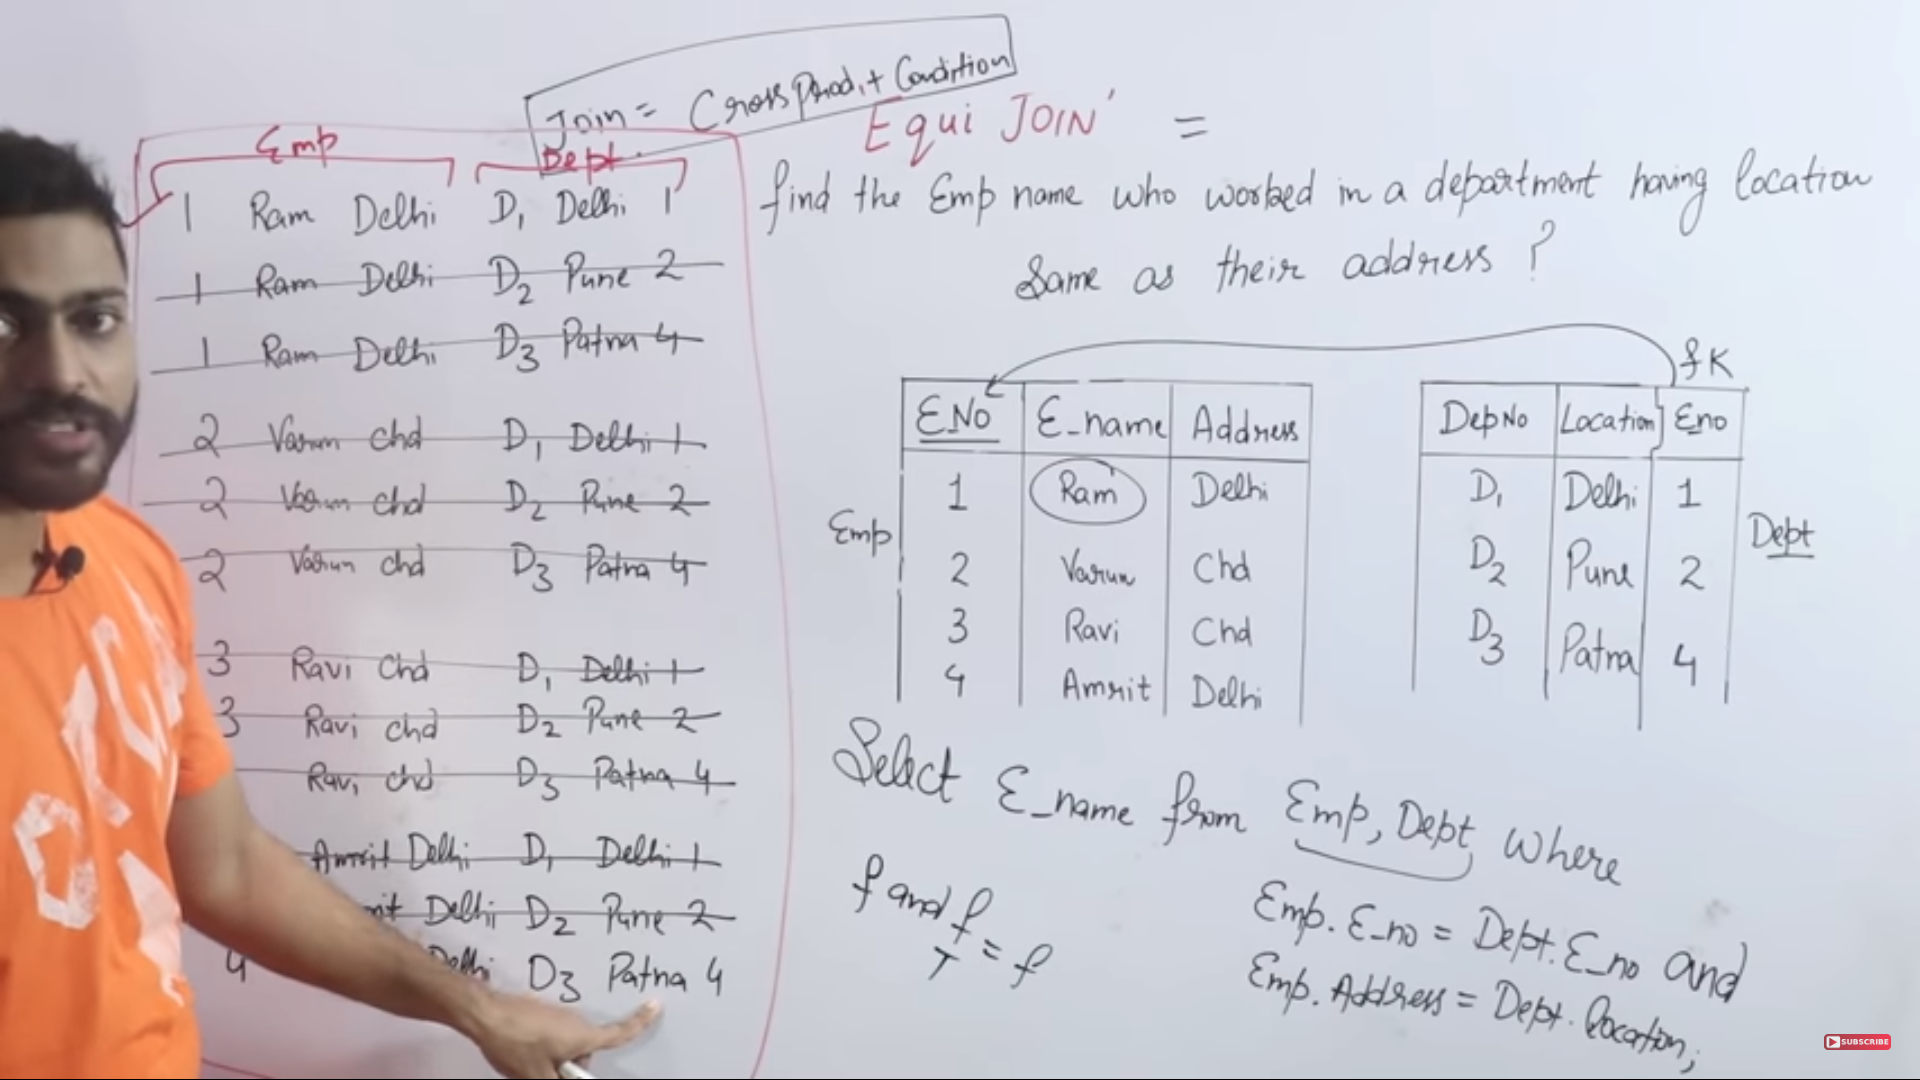 Join = Cross Prod. + Condition
Emp
Dept.
1 Ram Delhi D1 Delhi 1
1 Ram Delhi D2 Pune 2
1 Ram Delhi D3 Patna 4
2 Varun Chd D1 Delhi 1
2 Varun Chd D2 Pune 2
2 Varun Chd D3 Patna 4
3 Ravi Chd D1 Delhi 1
3 Ravi Chd D2 Pune 2
Ravi Chd D3 Patna 4
Amrit Delhi D1 Delhi 1
Delhi D2 Pune 2
4 Delhi D3 Patna 4
Equi JOIN =
find the Emp name who worked in a department having location
Same as their address ?
fK
Emp
E.No E_name Address
1 Ram Delhi
2 Varun Chd
3 Ravi Chd
4 Amrit Delhi
Dept
DepNo Location Eno
D1 Delhi 1
D2 Pune 2
D3 Patna 4
Select E_name from Emp, Dept where
Emp. E_no = Dept. E_no and
Emp. Address = Dept. location;
f and f
T = f
SUBSCRIBE